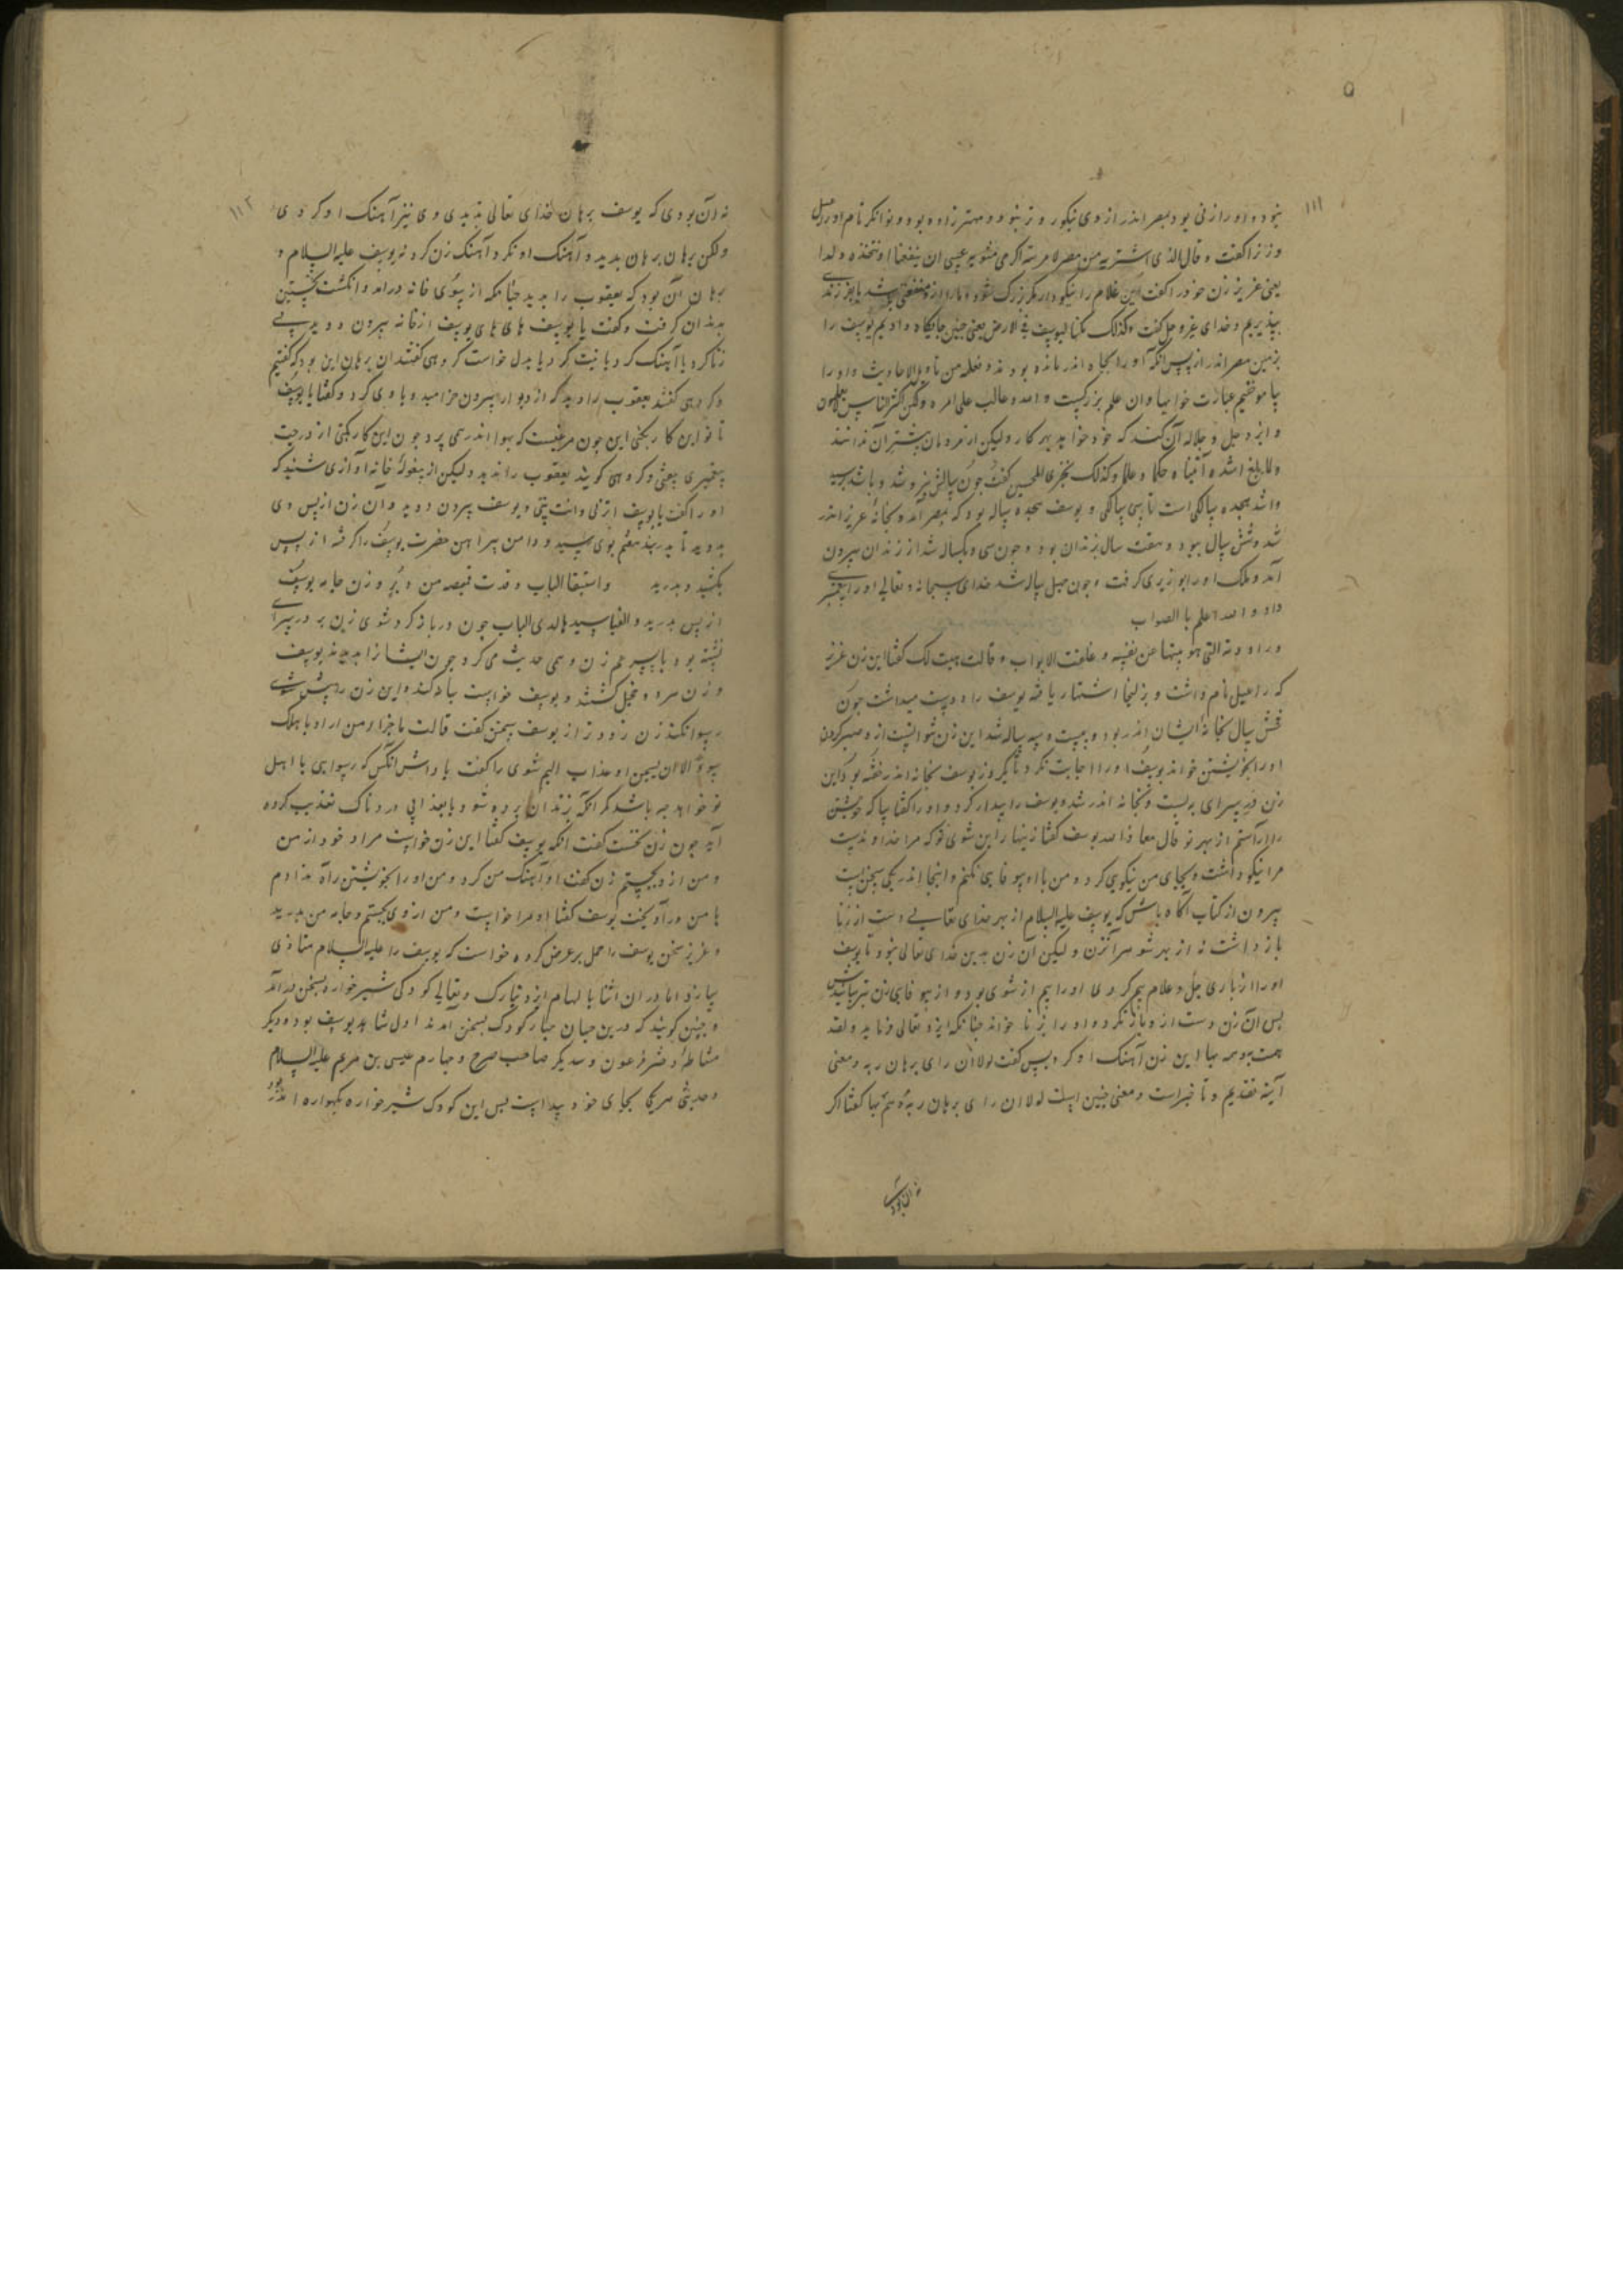 ۱۱۱
بنود و او را زنی بود بمصر اندر از وی نیکوتر نبود و مهتر زاده بود و توانگر نام او راعیل
و زنرا گفت و قال الذی اشتریه من مصر لامرته اکرمی مثویه عسی ان ینفعنا او نتخذه ولدا
یعنی عزیز زن خود را گفت این غلام را نیکو دار مگر بزرگ شود و ما را ازو منفعتی باشد یا بفرزندی
بپذیریم و خدای عز و جل گفت وکذلک مکنا لیوسف فی الارض یعنی چنین جایگاه دادیم یوسف را
بزمین مصر اندر از پس آنکه او را بچاه اندر مانده بودند و نعلمه من تاویل الاحادیث و او را
بیاموختیم عبارت خوابها و ان علم بزرگست والله غالب علی امره ولکن اکثر الناس لایعلمون
و ایزد جل و جلاله آن کند که خود خواهد بهر کار ولیکن از مردمان بیشتر آن ندانند
ولما بلغ اشده آتیناه حکما و علما وکذلک نجزی المحسنین گفت چون بالش نیرو شد و باشد رسید
واشد هجده سالگی است تا سی سالگی و یوسف هجده ساله بود که بمصر آمد و بخانه عزیز اندر
شد و شش سال ببود و هفت سال بزندان بود و چون سی و یکساله شد از زندان بیرون
آمد و ملک او را بوزیری گرفت و چون چهل ساله شد خدای سبحانه و تعالی او را پیغمبری
داد والله اعلم بالصواب
وراودته التی هو بیتها عن نفسه وغلقت الابواب وقالت هیت لک گفتا این زن عزیز
که راعیل نام داشت و بزلیخا اشتهار یافته یوسف را دوست میداشت چون
شش سال بخانه ایشان اندر بود و بیست و سه ساله شد این زن نتوانست از و صبر کردن
او را بخویشتن خواند یوسف او را اجابت نکرد تا یکروز یوسف بخانه اندر خفته بود این
زن در سرای ببست و بخانه اندر شد و یوسف را بیدار کرد و او را گفتا بیا که خویشتن
را آراستم از بهر تو قال معاذ الله یوسف گفتا زینهار این شوی تو که مرا خداوندست
مرا نیکو داشت و بجای من نیکویی کرد و من با او بیوفایی نکنم و اینجا اندر یکی سخن است
بیرون از کتاب آگاه باش که یوسف علیه السلام از بهر خدای تعالی دست از زنا
باز داشت نه از بهر شوهر آنزن ولیکن آن زن بدین خدای تعالی نبود تا یوسف
او را از باری جل و علا هم بیم کردی او را بیم از شوی بود و از بیوفایی زن
پس آن زن دست از و باز نکرد و او را بزنا خواند چنانکه ایزد تعالی فرماید ولقد
همت به وهم بها این زن آهنک او کرد پس گفت لولا ان رای برهان ربه و معنی
آیه تقدیم و تاخیراست و معنی چنین است لولا ان رای برهان ربه وهم بها گفتا اگر
۱۱۲
نه آن بودی که یوسف برهان خدای تعالی بدیدی وی نیز آهنک او کردی
ولکن برهان بدید و آهنک او نکرد و آهنک زن کرد نه یوسف علیه السلام و
برهان آن بود که یعقوب را بدید چنانکه از سوی خانه درآمد و انگشت نخستین
بدندان گرفت و گفت یا یوسف های های یوسف از خانه بیرون دوید بی
زنا کرد یا آهنک کرد یا نیت کرد یا بدل خواست گروهی گفتند ان برهان این بود که گفتیم
و گروهی گفتند یعقوب را دید که از دیوار بیرون خرامید و با وی کرد و گفتا یا یوسف
تا تو این کار نکنی این چون مرغیست که بهوا اندر همی پرد چون این کار بکنی از درجت
پیغمبری بیفتی و گروهی گویند یعقوب را ندید ولیکن از بیغوله خانه آوازی شنید که
او را گفت یا یوسف اتزنی وانت نبی و یوسف بیرون دوید وان زن از پس وی
بدوید تا بدر هفتم بوی رسید و دامن پیراهن حضرت یوسف را گرفته از پس
بکشید و بدرید واستبقا الباب وقدت قمیصه من دبر و زن جامه یوسف
از پس بدرید والفیا سیدها لدی الباب چون در باز کرد شوی زن بر در سرای
نشسته بود با پسر عم زن و همی حدیث می کرد چون ایشانرا بدیدند یوسف
و زن هر دو خجل گشتند و یوسف خواست یاد کند و این زن را پیش شوی
رسوا نکند زن زودتر از یوسف سخن گفت قالت ما جزاء من اراد باهلک
سوءا الا ان یسجن او عذاب الیم شوی را گفت پاداش آنکس که رسوایی با اهل
تو خواهد چه باشد مگر آنکه بزندان برده شود یا بعذابی دردناک تعذیب کرده
آید چون زن نخست گفت آنگه یوسف گفتا این زن خواست مراد خود از من
و من از و بجستم زن گفت او آهنک من کرد و من او را بخویشتن راه ندادم
با من درآویخت یوسف گفتا او مرا خواست و من از وی بجستم و جامه من بدرید
و عزیز سخن یوسف را حمل بر عرض کرده خواست که یوسف را علیه السلام متاذی
سازد اما در ان اثنا بالهام ایزد تبارک و تعالی کودکی شیرخواره بسخن درآمد
و چنین گویند که درین جهان چهار کودک بسخن آمدند اول شاهد یوسف بود و دیگر
مشاطه دختر فرعون و سدیگر صاحب صرح و چهارم عیسی بن مریم علیه السلام
و حدیث هر یکی بجای خود پیداست پس این کودک شیرخواره بگهواره اندر بود